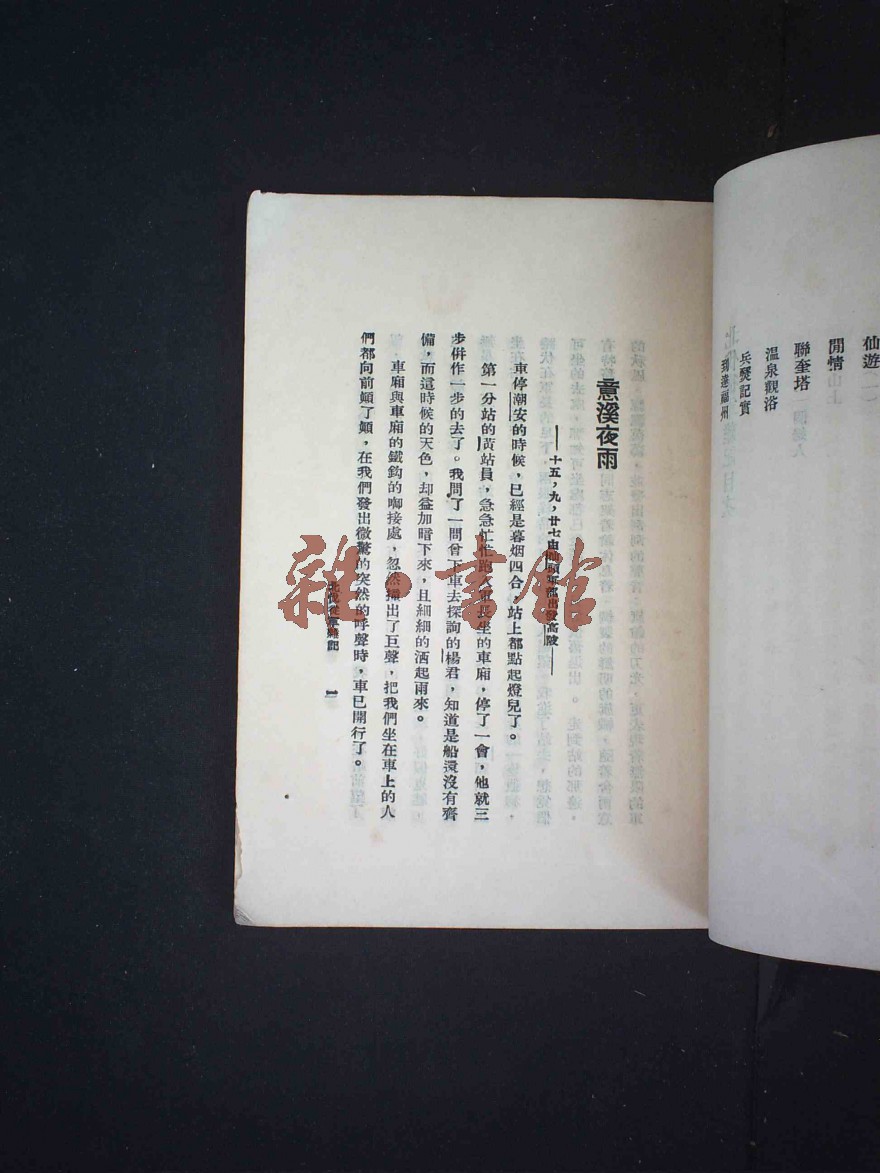 仙遊(一)
閒情
聯奎塔
溫泉觀浴
兵燹記實
到達福州
意溪夜雨
——十五,九,廿七由汕頭軍部出發高陂——
車停潮安的時候,已經是暮烟四合,站上都點起燈兒了。
第一分站的黃站員,急急忙忙跑入軍長坐的車廂,停了一會,他就三
步併作一步的去了。我問了一問曾下車去探詢的楊君,知道是船還沒有齊
備,而這時候的天色,却益加暗下來,且細細的洒起雨來。
車廂與車廂的鐵鈎的啣接處,忽然擂出了巨聲,把我們坐在車上的人
們都向前顛了顛,在我們發出微驚的突然的呼聲時,車已開行了。
北伐從軍雜記 一
雜·書館